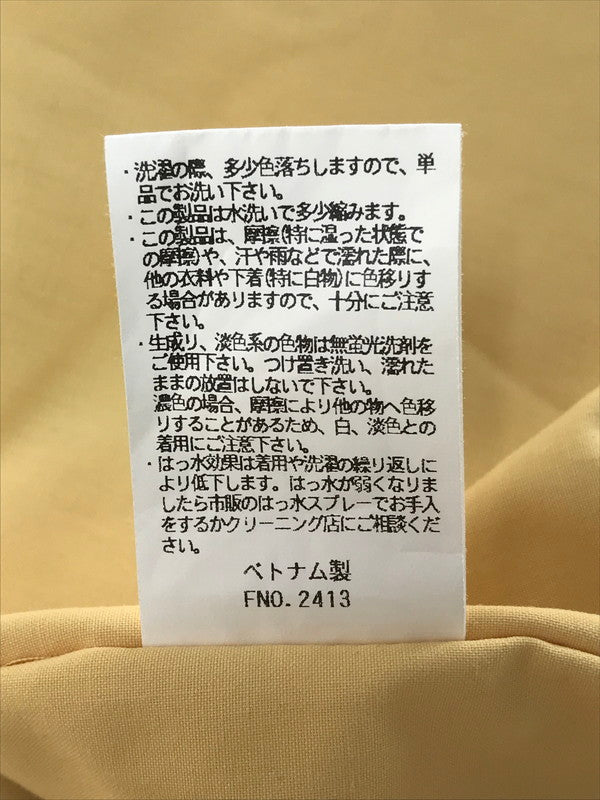 ・洗濯の際、多少色落ちしますので、単
品でお洗い下さい。
・この製品は水洗いで多少縮みます。
・この製品は、摩擦(特に湿った状態で
の摩擦)や、汗や雨などで濡れた際に、
他の衣料や下着(特に白物)に色移りす
る場合がありますので、十分にご注意
下さい。
・生成り、淡色系の色物は無蛍光洗剤を
ご使用下さい。つけ置き洗い、濡れた
ままの放置はしないで下さい。
濃色の場合、摩擦により他の物へ色移
りすることがあるため、白、淡色との
着用にご注意下さい。
・はっ水効果は着用や洗濯の繰り返しに
より低下します。はっ水が弱くなりま
したら市販のはっ水スプレーでお手入
をするかクリーニング店にご相談くだ
さい。
ベトナム製
FNO.2413